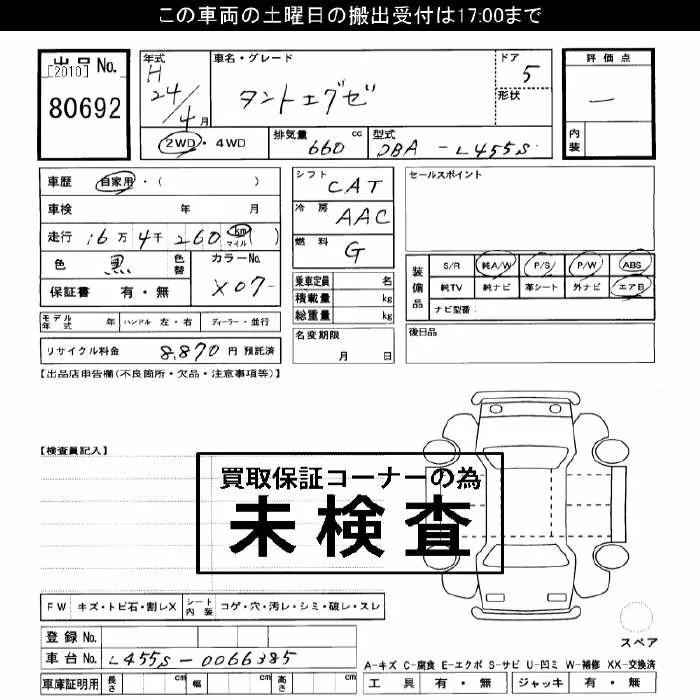 この車両の土曜日の搬出受付は17:00まで
出品No.
[2010]
80692
年式 車名・グレード ドア 評価点
H 24/4月 タントエグゼ 5 —
形状
2WD・4WD 排気量 660 cc 型式 DBA-L455S 内装
車歴 自家用・( )
車検 年 月
走行 16万 4千 260 km マイル ( )
色 黒 色替 カラーNo.
保証書 有・無 X07-
シフト CAT
冷房 AAC
燃料 G
乗車定員 名
積載量 kg
総重量 kg
セールスポイント
装備品 S/R 純A/W P/S P/W ABS
純TV 純ナビ 革シート 外ナビ エアB
ナビ型番:
モデル年式 年 ハンドル 左・右 ディーラー・並行
名変期限 月 日
後日品
リサイクル料金 8,870 円 預託済
【出品店申告欄(不良箇所・欠品・注意事項等)】
【検査員記入】
買取保証コーナーの為
未検査
FW キズ・トビ石・割レX シート内装 コゲ・穴・汚レ・シミ・破レ・スレ
スペア
登録No.
車台No. L455S-0066385
A-キズ C-腐食 E-エクボ S-サビ U-凹ミ W-補修 XX-交換済
車庫証明用 長さ cm 幅 cm 高さ cm 工具 有・無 ジャッキ 有・無